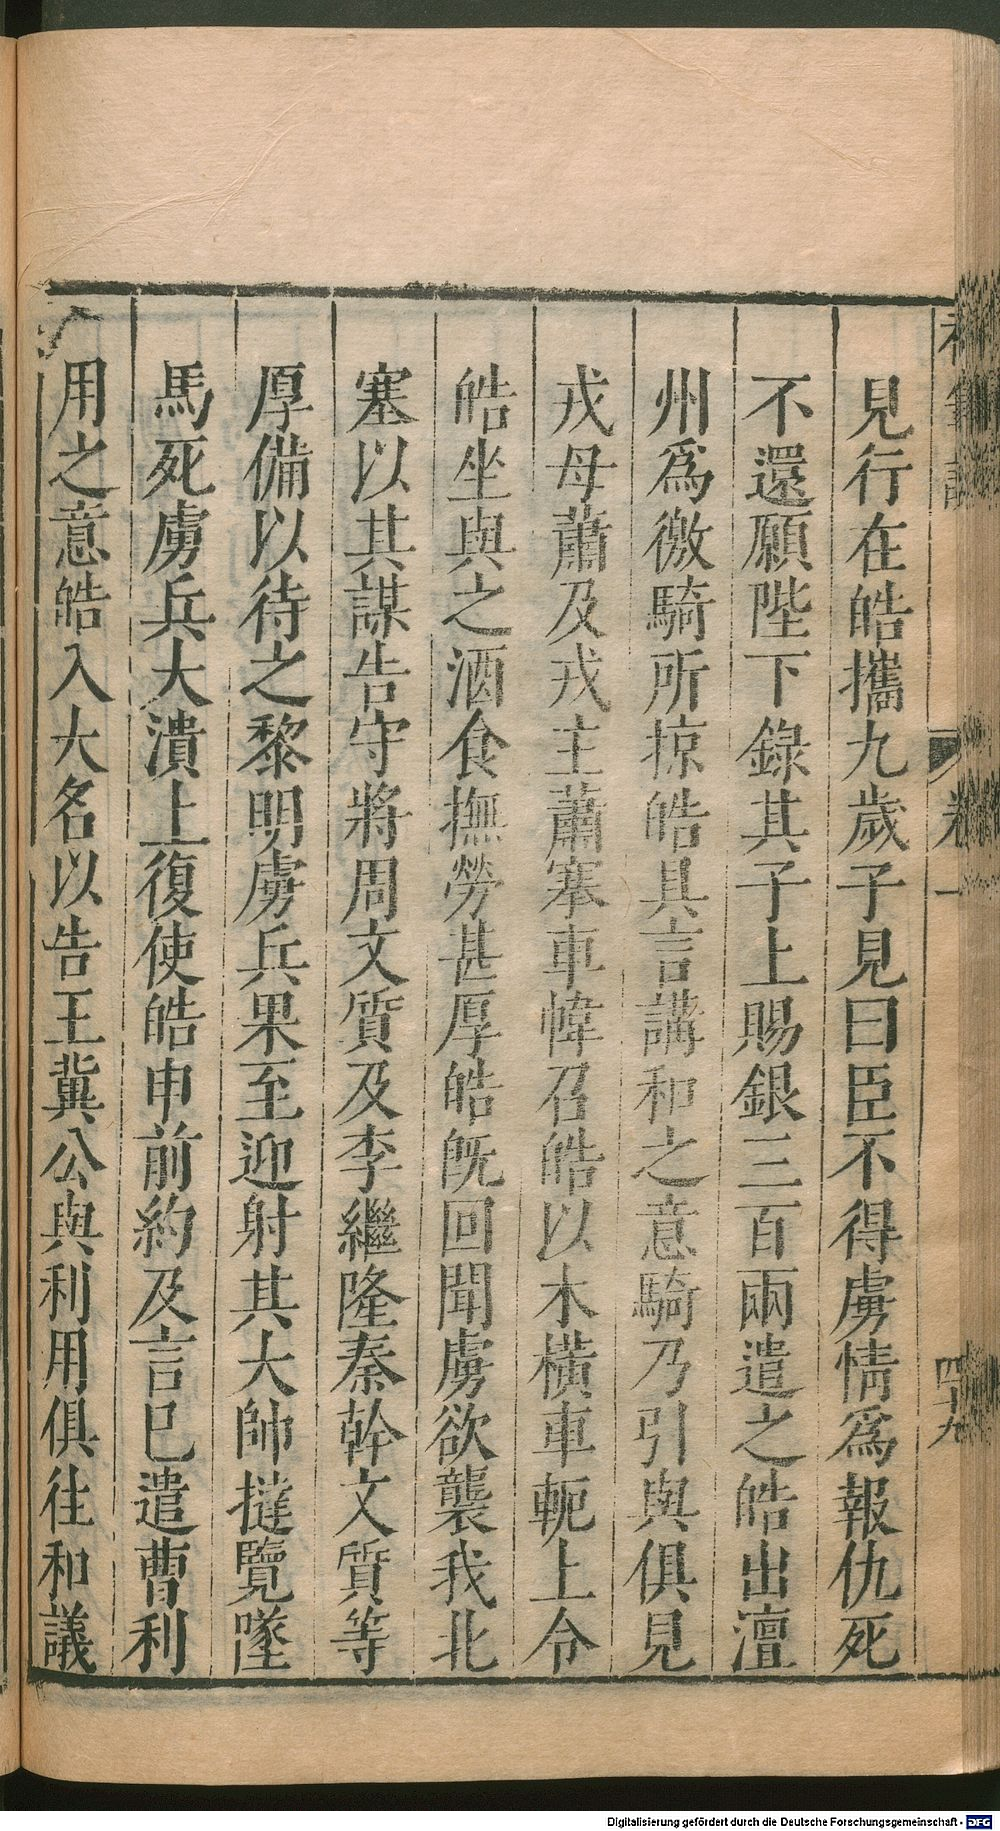 見行在皓攜九歲子見曰臣不得虜情爲報仇死
不還願陛下錄其子上賜銀三百兩遣之皓出澶
州爲徼騎所掠皓具言講和之意騎乃引與俱見
戎母蕭及戎主蕭搴車幃召皓以木橫車軛上令
皓坐與之酒食撫勞甚厚皓旣回聞虜欲襲我北
塞以其謀告守將周文質及李繼隆秦幹文質等
厚備以待之黎明虜兵果至迎射其大帥撻覽墜
馬死虜兵大潰上復使皓申前約及言巳遣曹利
用之意皓入大名以告王冀公與利用俱往和議
卷一
四十九
Digitalisierung gefördert durch die Deutsche Forschungsgemeinschaft - DFG